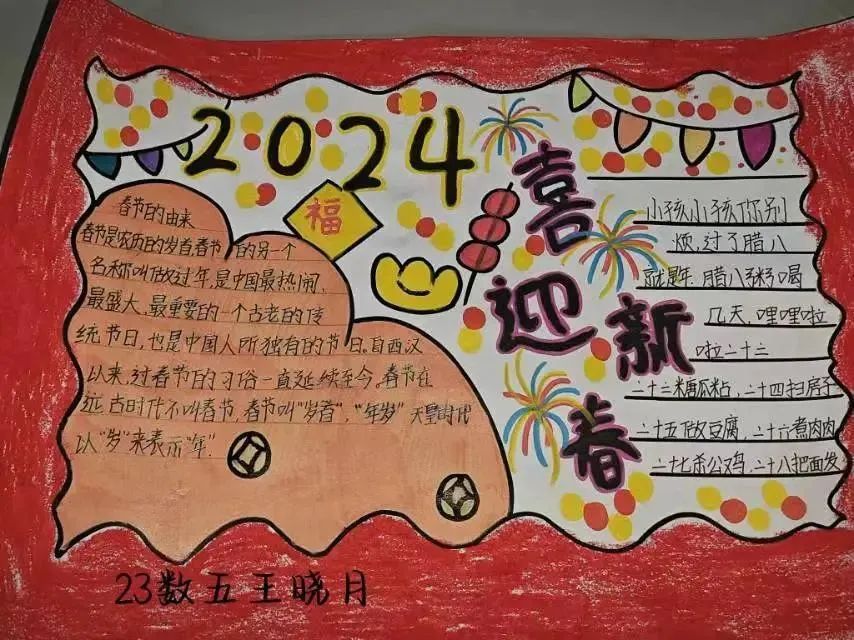 2024
福
喜迎新春
春节的由来
春节是农历的岁首,春节的另一个
名称叫做过年,是中国最热闹、
最盛大、最重要的一个古老的传
统节日,也是中国人所独有的节日。自西汉
以来,过春节的习俗一直延续至今,春节在
远古时代不叫春节,春节叫“岁首”,“年岁”天皇时代
以“岁”来表示“年”.
小孩小孩你别
烦,过了腊八
就是年,腊八粥喝
几天,哩哩啦
啦二十三
二十三糖瓜粘,二十四扫房子
二十五做豆腐,二十六煮肉肉
二十七杀公鸡,二十八把面发
23数五王晓月